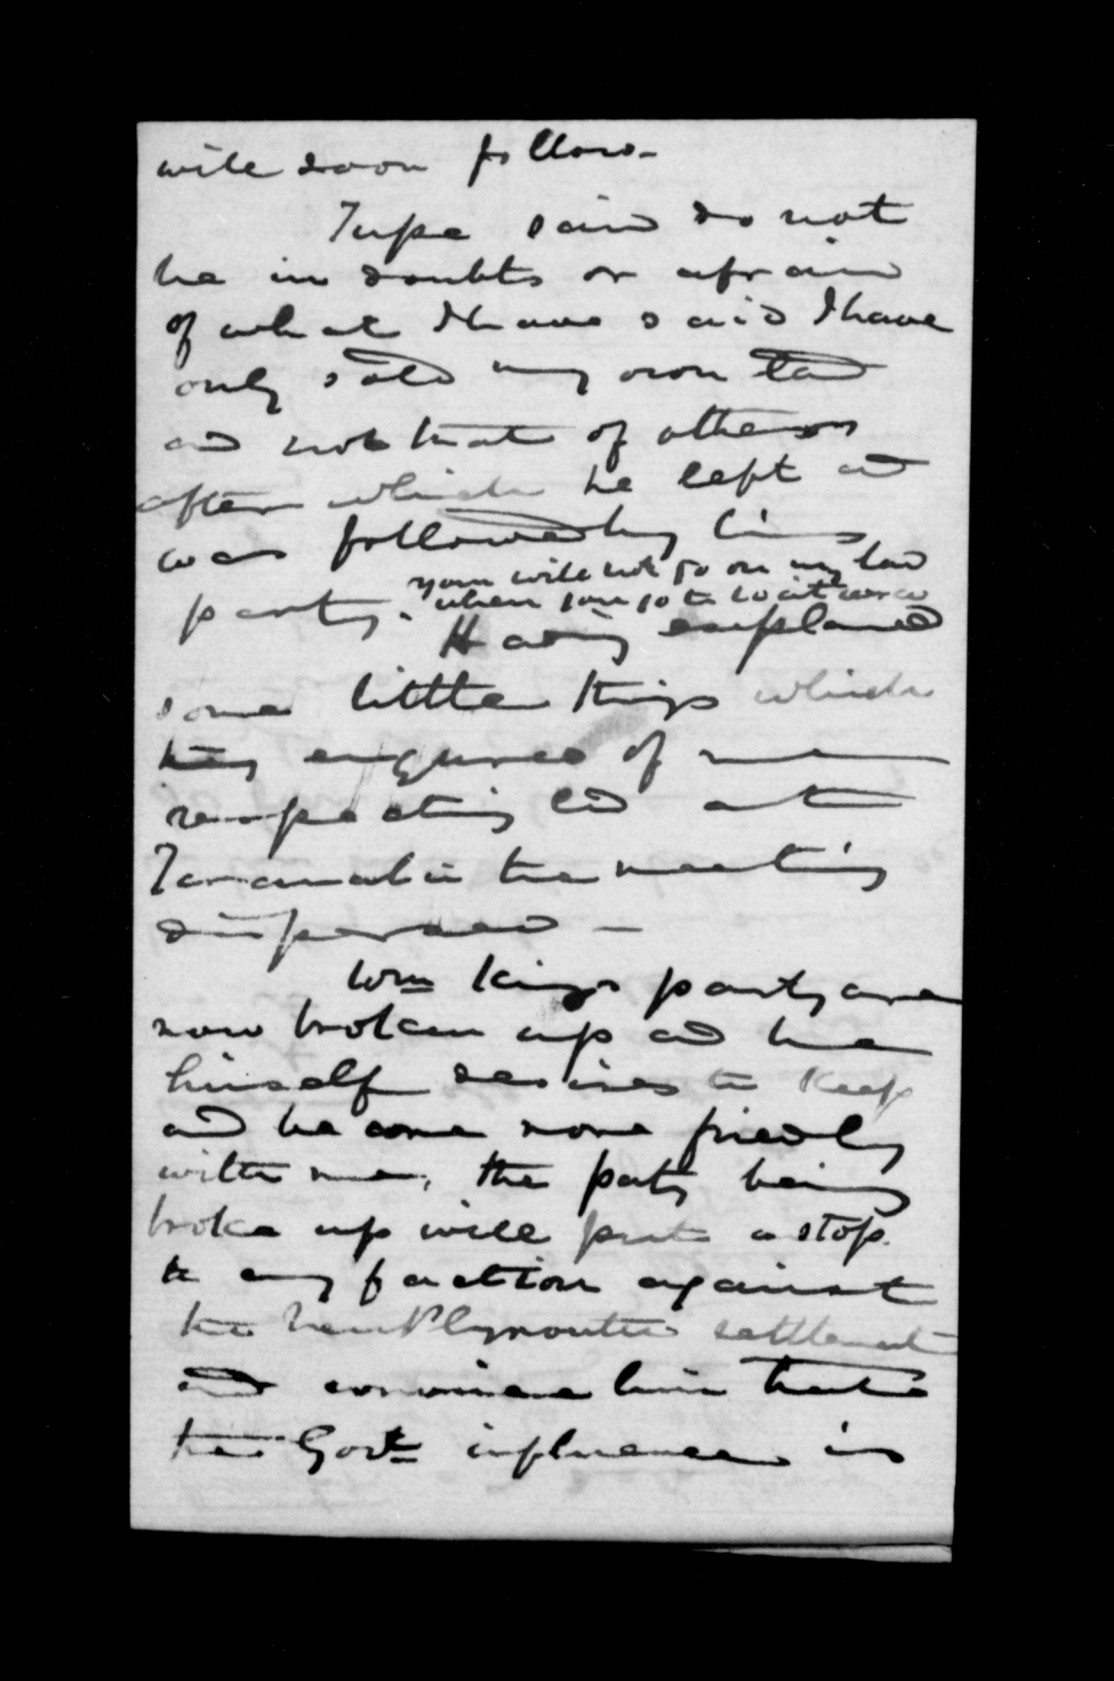 will soon follow -
Tupe said do not
be in doubts or afraid
of what I have said I have
only sold my own land
and not that of others
after which he left and
was followed by his
your will not go on my land
party. when you go to Waitara
Having explained
some little things which
they enquired of me
respecting land at
Taranaki the meeting
dispersed -
Wm Kings party are
now broken up and he
himself desires to keep
and become more friendly
with me, the party being
broke up will put a stop
to any faction against
the New Plymouth settlement
and convince him that
the Govt influence is